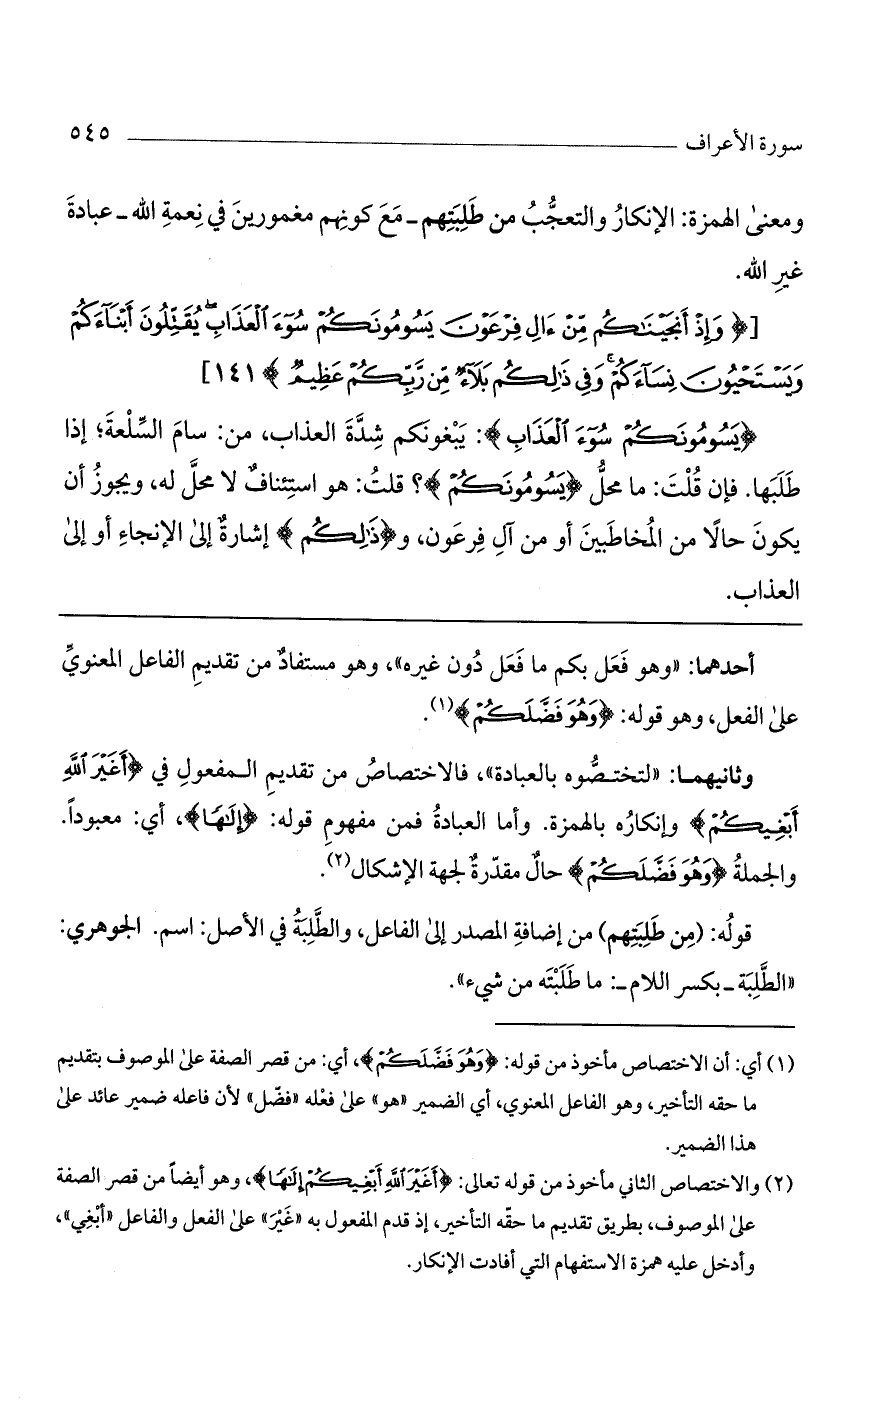 سورة الأعراف ٥٤٥
ومعنىٰ الهمزة: الإنكارُ والتعجُّبُ من طَلِبَتِهم ـ مَعَ كونِهم مغمورينَ في نِعمةِ الله ـ عبادةَ
غيرِ الله.
[﴿ وَإِذْ أَنجَيْنَـٰكُم مِّنْ ءَالِ فِرْعَوْنَ يَسُومُونَكُمْ سُوٓءَ ٱلْعَذَابِ ۖ يُقَتِّلُونَ أَبْنَآءَكُمْ
وَيَسْتَحْيُونَ نِسَآءَكُمْ ۚ وَفِى ذَٰلِكُم بَلَآءٌ مِّن رَّبِّكُمْ عَظِيمٌ ﴾ ١٤١]
﴿يَسُومُونَكُمْ سُوٓءَ ٱلْعَذَابِ﴾: يَبْغونَكم شِدَّةَ العذاب، من: سامَ السِّلْعةَ؛ إذا
طَلَبَها. فإن قُلْتَ: ما محلُّ ﴿يَسُومُونَكُمْ﴾؟ قلتُ: هو استِئنافٌ لا محلَّ له، ويجوزُ أن
يكونَ حالًا من المُخاطَبينَ أو من آلِ فِرعَون، و﴿ذَٰلِكُم﴾ إشارةٌ إلىٰ الإنجاءِ أو إلىٰ
العذاب.
أحدهما: «وهو فَعَل بكم ما فَعَل دُون غيره»، وهو مستفادٌ من تقديمِ الفاعل المعنويِّ
علىٰ الفعل، وهو قوله: ﴿وَهُوَ فَضَّلَكُمْ﴾(١).
وثانيهما: «لتختصُّوه بالعبادة»، فالاختصاصُ من تقديمِ المفعولِ في ﴿أَغَيْرَ ٱللَّهِ
أَبْغِيكُمْ﴾ وإنكارُه بالهمزة. وأما العبادةُ فمن مفهومِ قوله: ﴿إِلَـٰهًا﴾، أي: معبوداً.
والجملةُ ﴿وَهُوَ فَضَّلَكُمْ﴾ حالٌ مقدّرةٌ لجهة الإشكال(٢).
قولُه: (مِن طَلِبَتِهم) من إضافةِ المصدر إلىٰ الفاعل، والطَّلِبَةُ في الأصل: اسم. الجوهري:
«الطَّلِبَة ـ بكسر اللام ـ: ما طَلَبْتَه من شيء».
(١) أي: أن الاختصاص مأخوذ من قوله: ﴿وَهُوَ فَضَّلَكُمْ﴾، أي: من قصر الصفة علىٰ الموصوف بتقديم
ما حقه التأخير، وهو الفاعل المعنوي، أي الضمير «هو» علىٰ فعْله «فضّل» لأن فاعله ضمير عائد علىٰ
هذا الضمير.
(٢) والاختصاص الثاني مأخوذ من قوله تعالى: ﴿أَغَيْرَ ٱللَّهِ أَبْغِيكُمْ إِلَـٰهًا﴾، وهو أيضاً من قصر الصفة
علىٰ الموصوف، بطريق تقديم ما حقّه التأخير، إذ قدم المفعول به «غَيْرَ» علىٰ الفعل والفاعل «أبْغِي»،
وأدخل عليه همزة الاستفهام التي أفادت الإنكار.